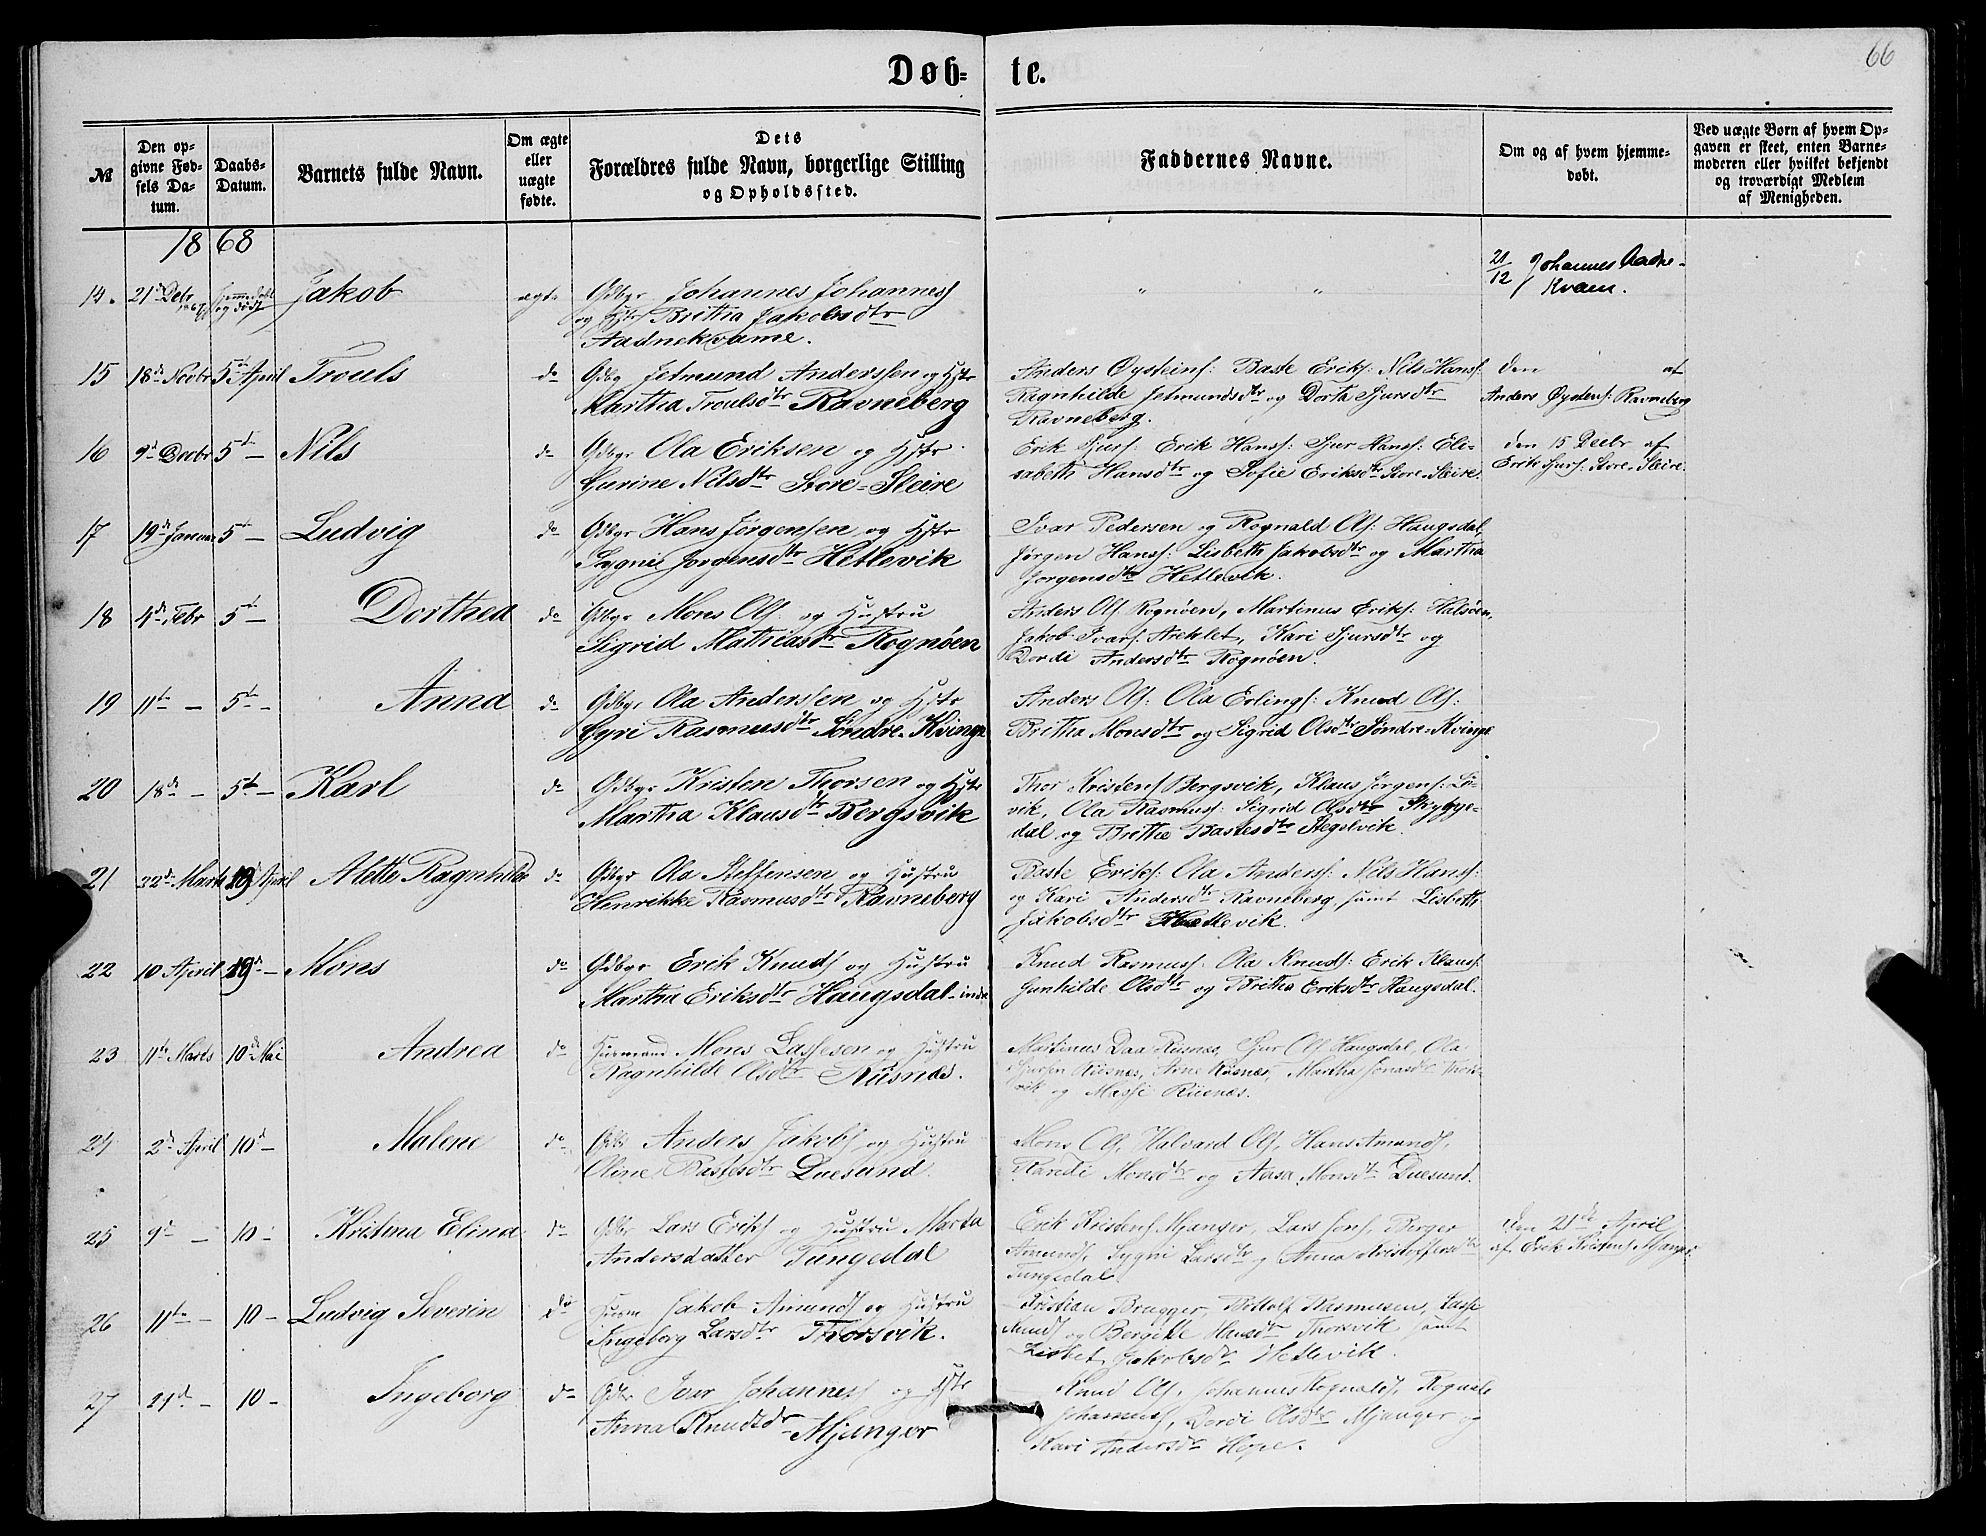 66
Døb- te.
№
Den op-
givne Fød-
sels Da-
tum.
Daabs-
Datum.
Barnets fulde Navn.
Om ægte
eller
uægte
fødte.
Dets
Forældres fulde Navn, borgerlige Stilling
og Opholdssted.
Faddernes Navne.
Om og af hvem hjemme-
døbt.
Ved uægte Børn af hvem Op-
gaven er skeet, enten Barne-
moderen eller hvilket bekjendt
og troværdigt Medlem
af Menigheden.
1868
14. 21de Debr 1867 hjemmedøbt og død Jakob ægte Gdbgr Johannes Johanness
og Hstr Brittha Jakobsdtr
Aadnekvame.
" "
21/12 Johannes Aadne-
Kvam.
15 18de Novbr 5te April Trouls do Gdbg Jetmund Anderssen og Hstr
Martha Troulsdtr Ravneberg
Anders Øysteins: Baste Eriks: Nils Hans:
Ragnhilde Jetmundsdtr og Dorta Sjursdtr
Ravneberg.
den af
Anders Øystens: Ravneberg
16 9d Decbr 5te — Nils do Gdbgr Ola Eriksen og Hstr
Gurine Nilsdtr Store-Sleire
Erik Sjurs: Erik Hans: Sjur Hans: Eli-
sabeth Hansdtr og Sofie Eriksdtr Store-Sleire.
den 15 Decbr af
Erik Sjurs: Store-Sleire.
17 19de Januar 5te — Ludvig do Gdbgr Hans Jørgensen og Hstr
Sygni Jørgensdtr Hetlevik
Ivar Pedersen og Rognald Ols: Haugsdal,
Jørgen Hans: Lisbeth Jakobsdtr og Martha
Jørgensdtr Hetlevik.
18 4de Febr 5te — Dorthea do Gdbgr Mons Ols og Hustru
Sigrid Mathiasdtr Rognøen
Anders Ols Rognøen, Martinus Eriks: Halvøen,
Jakob Ivars Areklet, Kari Sjursdtr og
Dordi Andersdtr Rognøen.
19 11te — 5te — Anna do Gdbgr Ola Anderssen og Hstr
Gyri Rasmusdtr Søndre-Kvinge
Anders Ols: Ola Erlings: Knud Ols:
Britha Monsdtr og Sigrid Olsdtr Søndre-Kvinge
20 18de — 5te — Karl do Gdbgr Kristen Thorsen og Hstr
Martha Klausdtr Bergsvik
Thor Kristens Bergsvik, Klaus Jørgens: Lø-
vik, Ola Rasmus: Sigrid Olsdtr Skygge-
dal og Brithe Bastesdtr Hegelvik.
21 22de Marts 19de April Alette Ragnhilde do Gdbgr Ola Steffensen og Hustru
Henrikke Rasmusdtr Ravneberg
Baste Eriks: Ola Anders: Nils Hans:
og Kari Andersdtr Ravneberg samt Lisbeth
Jakobsdtr Hetlevik.
22 10 April 19de — Mons do Gdbgr Erik Knuds og Hustru
Martha Eriksdtr Haugsdal-indre
Knud Rasmus: Ola Knuds: Erik Klaus:
Gunhilde Olsdtr og Britha Eriksdtr Haugsdal.
23 11te Marts 10de Mai Andrea do Husmand Mons Lassesen og Hustru
Ragnhilde Olsdtr Risnes.
Martinus Daa Risnes, Sjur Ols Haugsdal, Ola
Sjursen Risnes, Arne Risnes, Martha Jonasdtr Thors-
vik og Massi Risnes.
24 2de April 10d — Malene do Gdbr Anders Jakobs og Hustru
Oline Bastesdtr Duesund.
Mons Ols, Halvard Ols, Hans Amunds,
Randi Monsdtr og Aasa Monsdtr Duesund.
25 9d — 10 - Kristina Elina do Gdbr Lars Eriks og Hustru Marta
Andersdatter Tungedal
Erik Kristens Mjanger, Lars Jons, Berger
Amunds, Sygni Larsdtr og Anna Kristoffersdtr
Tungedal.
den 21de April
af Erik Kristens Mjanger.
26 11te — 10 - Ludvig Severin do Husm Jakob Amunds og Hustru
Ingeborg Larsdtr Thorsvik.
Kristian Brugger, Rasmusen, Lasse
Knuds og Bergitte Hansdtr Thorsvik samt
Lisbet Jakobsdtr Hetlevik.
27 21d — 10 - Ingeborg do Gdbr Iver Johanness og Hstr
Anna Knudsdr Mjanger
Knud Ols, Johannes Rognalds, Rognald
Johanness, Dordi Olsdtr Mjanger og
Kari Andersdtr Hope.